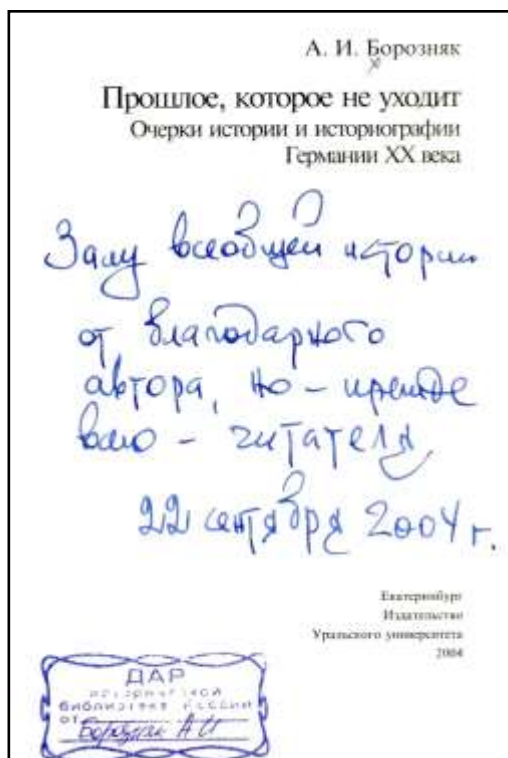 А. И. Борозняк
Прошлое, которое не уходит
Очерки истории и историографии
Германии XX века
Залу всеобщей истории
от благодарного
автора, но – прежде
всего – читателя
22 сентября 2004 г.
Екатеринбург
Издательство
Уральского университета
2004
ДАР
исторической
библиотеке России
от Борозняк А И